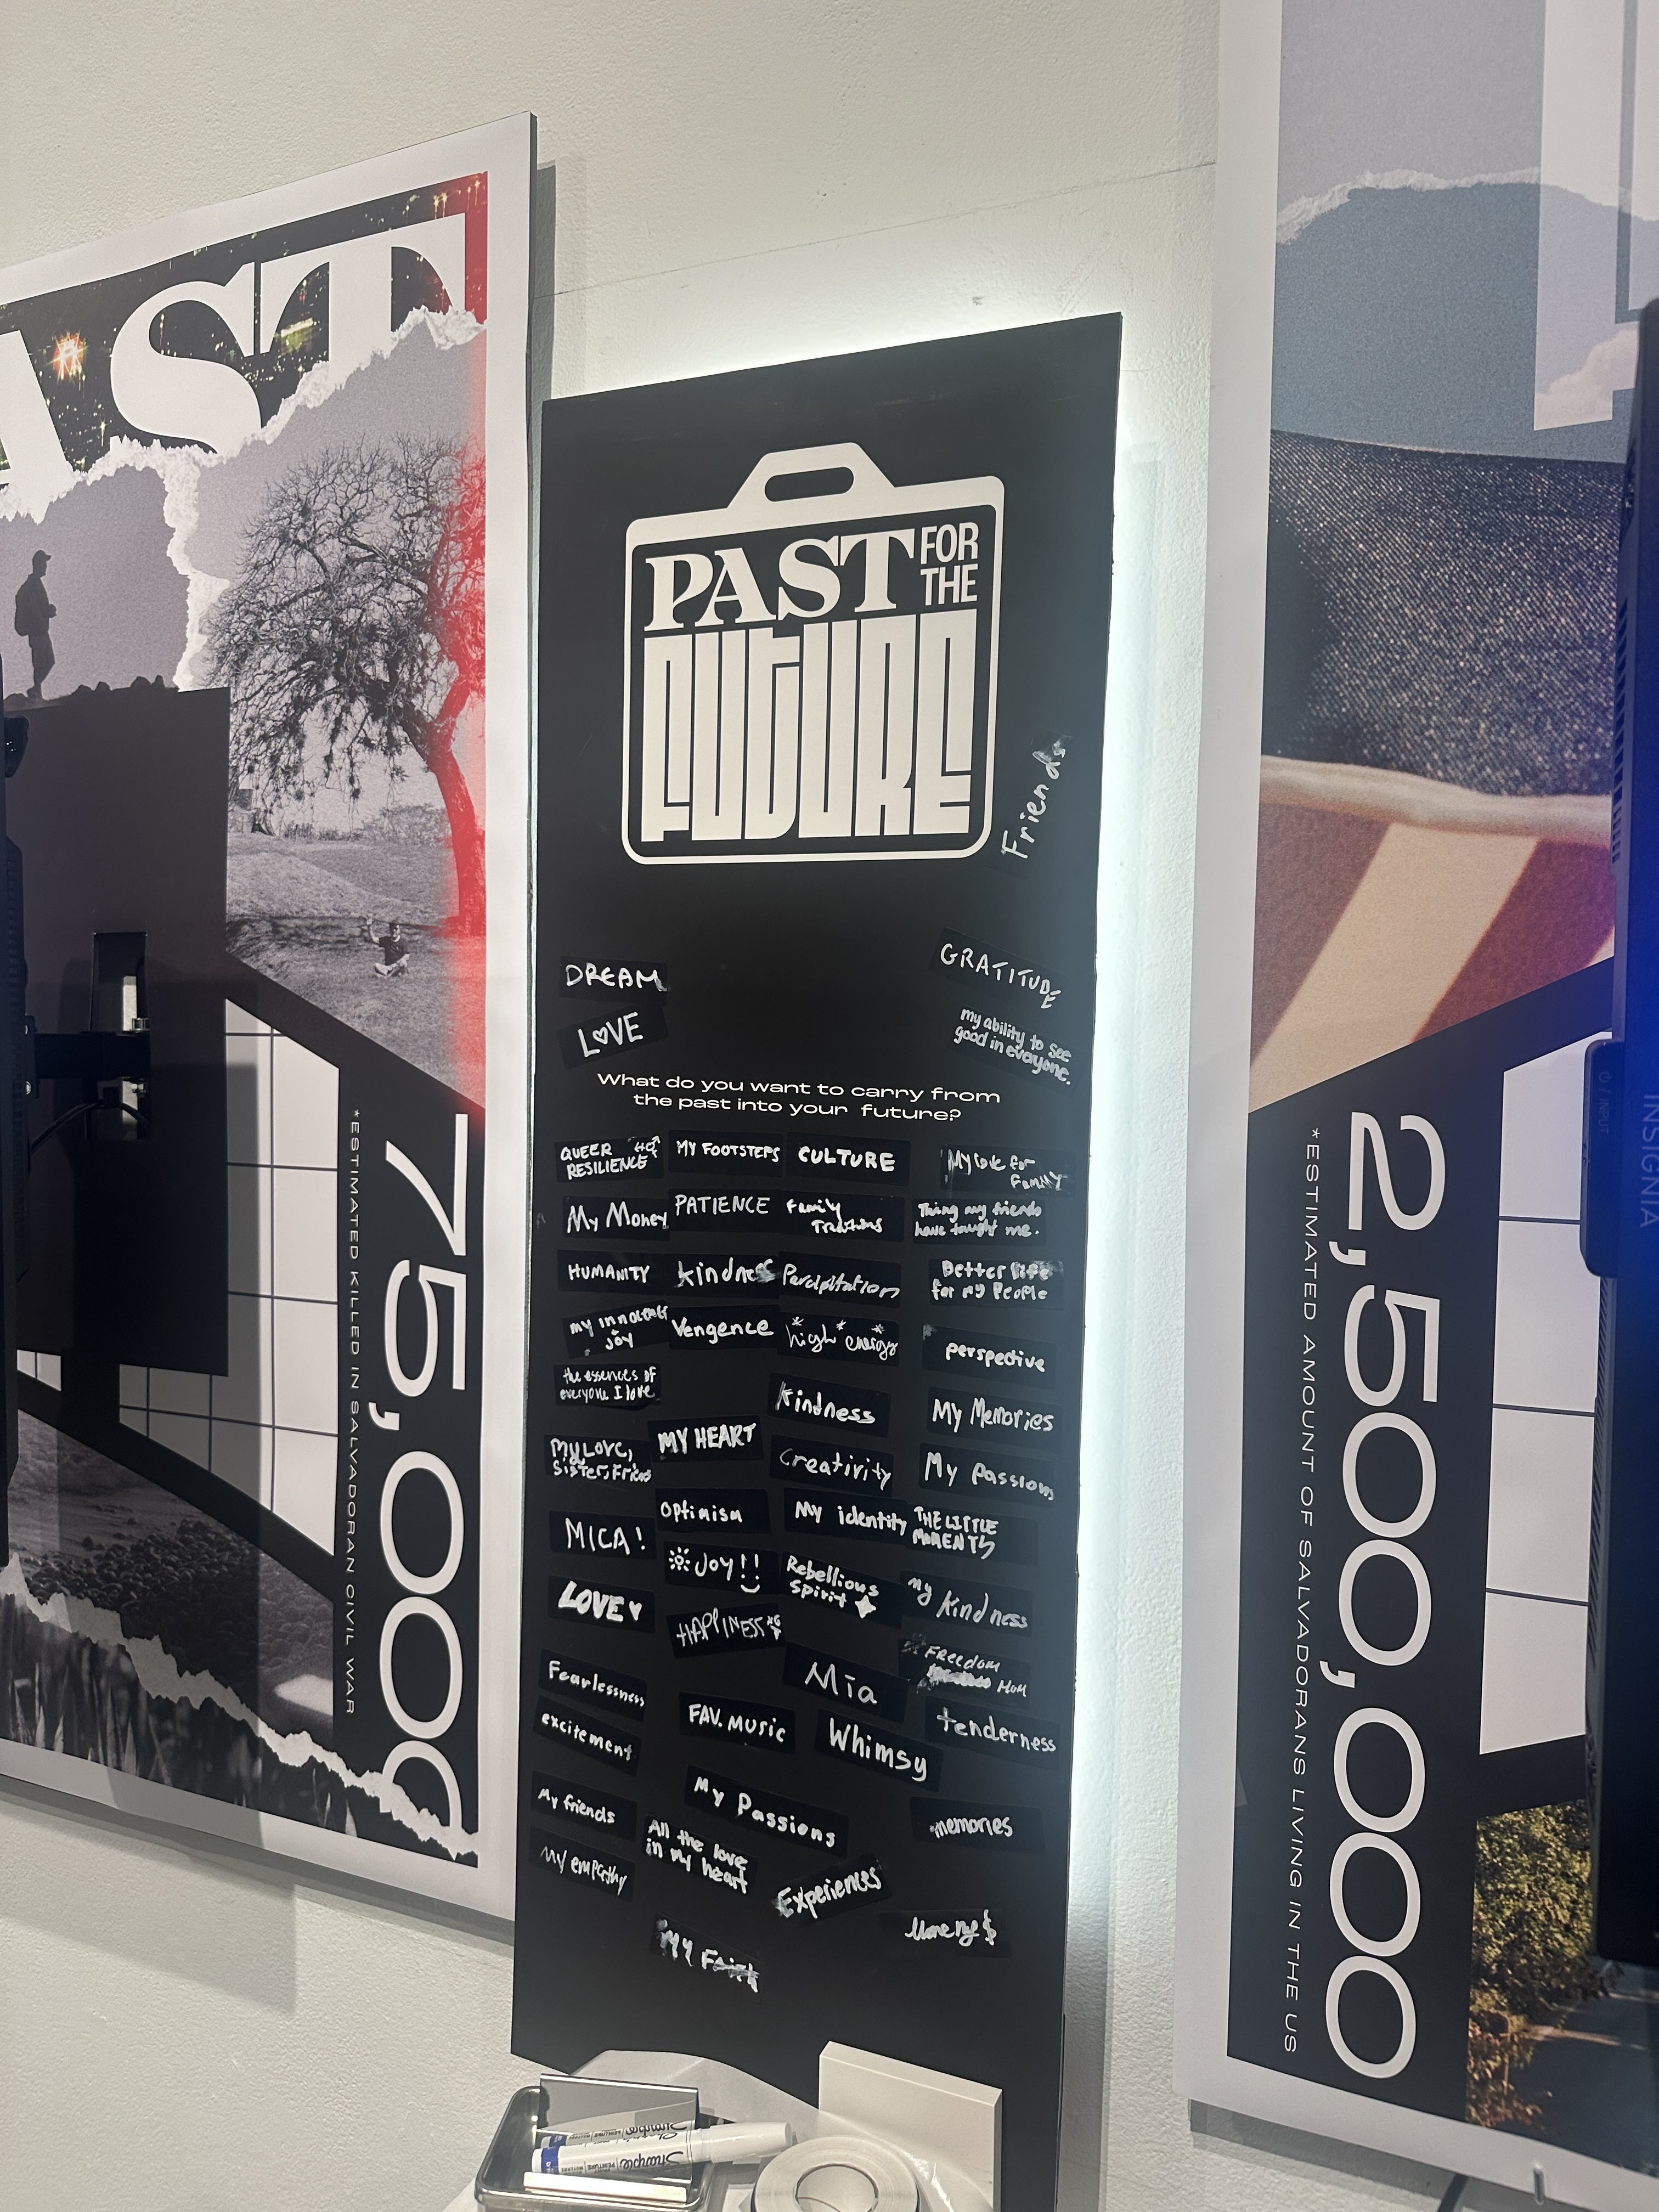 AST
75,000
*ESTIMATED KILLED IN SALVADORAN CIVIL WAR
PAST FOR
THE
FUTURE
Friends
DREAM
LOVE
GRATITUDE
my ability to see
good in everyone.
What do you want to carry from
the past into your future?
QUEER
RESILIENCE
MY FOOTSTEPS
CULTURE
My love for
FAMILY
My Money
PATIENCE
Family
Traditions
Thing my friends
have taught me.
HUMANITY
kindness
Percipitation
Better life
for my People
my innocent
joy
Vengence
*high* energy*
perspective
the essences of
everyone I love
Kindness
My Memories
My Love,
Sister, Friend
MY HEART
Creativity
My passions
MICA!
Optimism
My identity
THE LITTLE
MOMENTS
Joy!!
Rebellious
Spirit
my kindness
LOVE
HAPPINESS
Mia
FREEDOM
MOM
Fearlessness
FAV. MUSIC
Whimsy
tenderness
excitement
My Passions
memories
My friends
All the love
in my heart
My empathy
Experiences
Money $
MY Faith
2,500,000
*ESTIMATED AMOUNT OF SALVADORANS LIVING IN THE US
INSIGNIA
INPUT
Sharpie
Sharpie